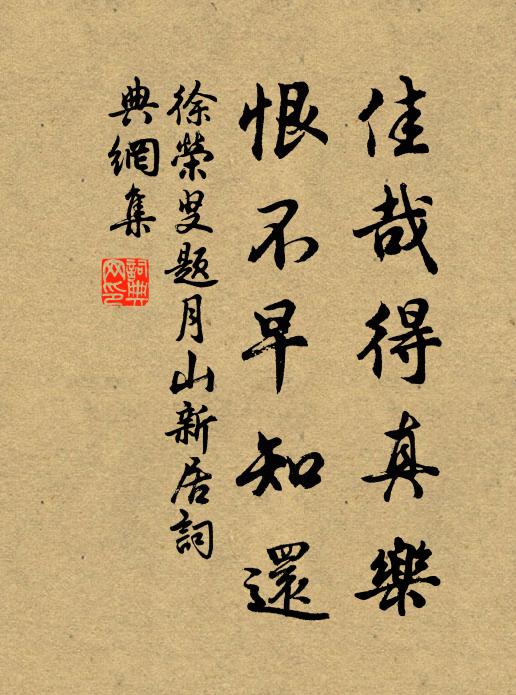 佳哉得真樂
恨不早知還
徐榮叟題月山新居詞
典網集
詞典
网印